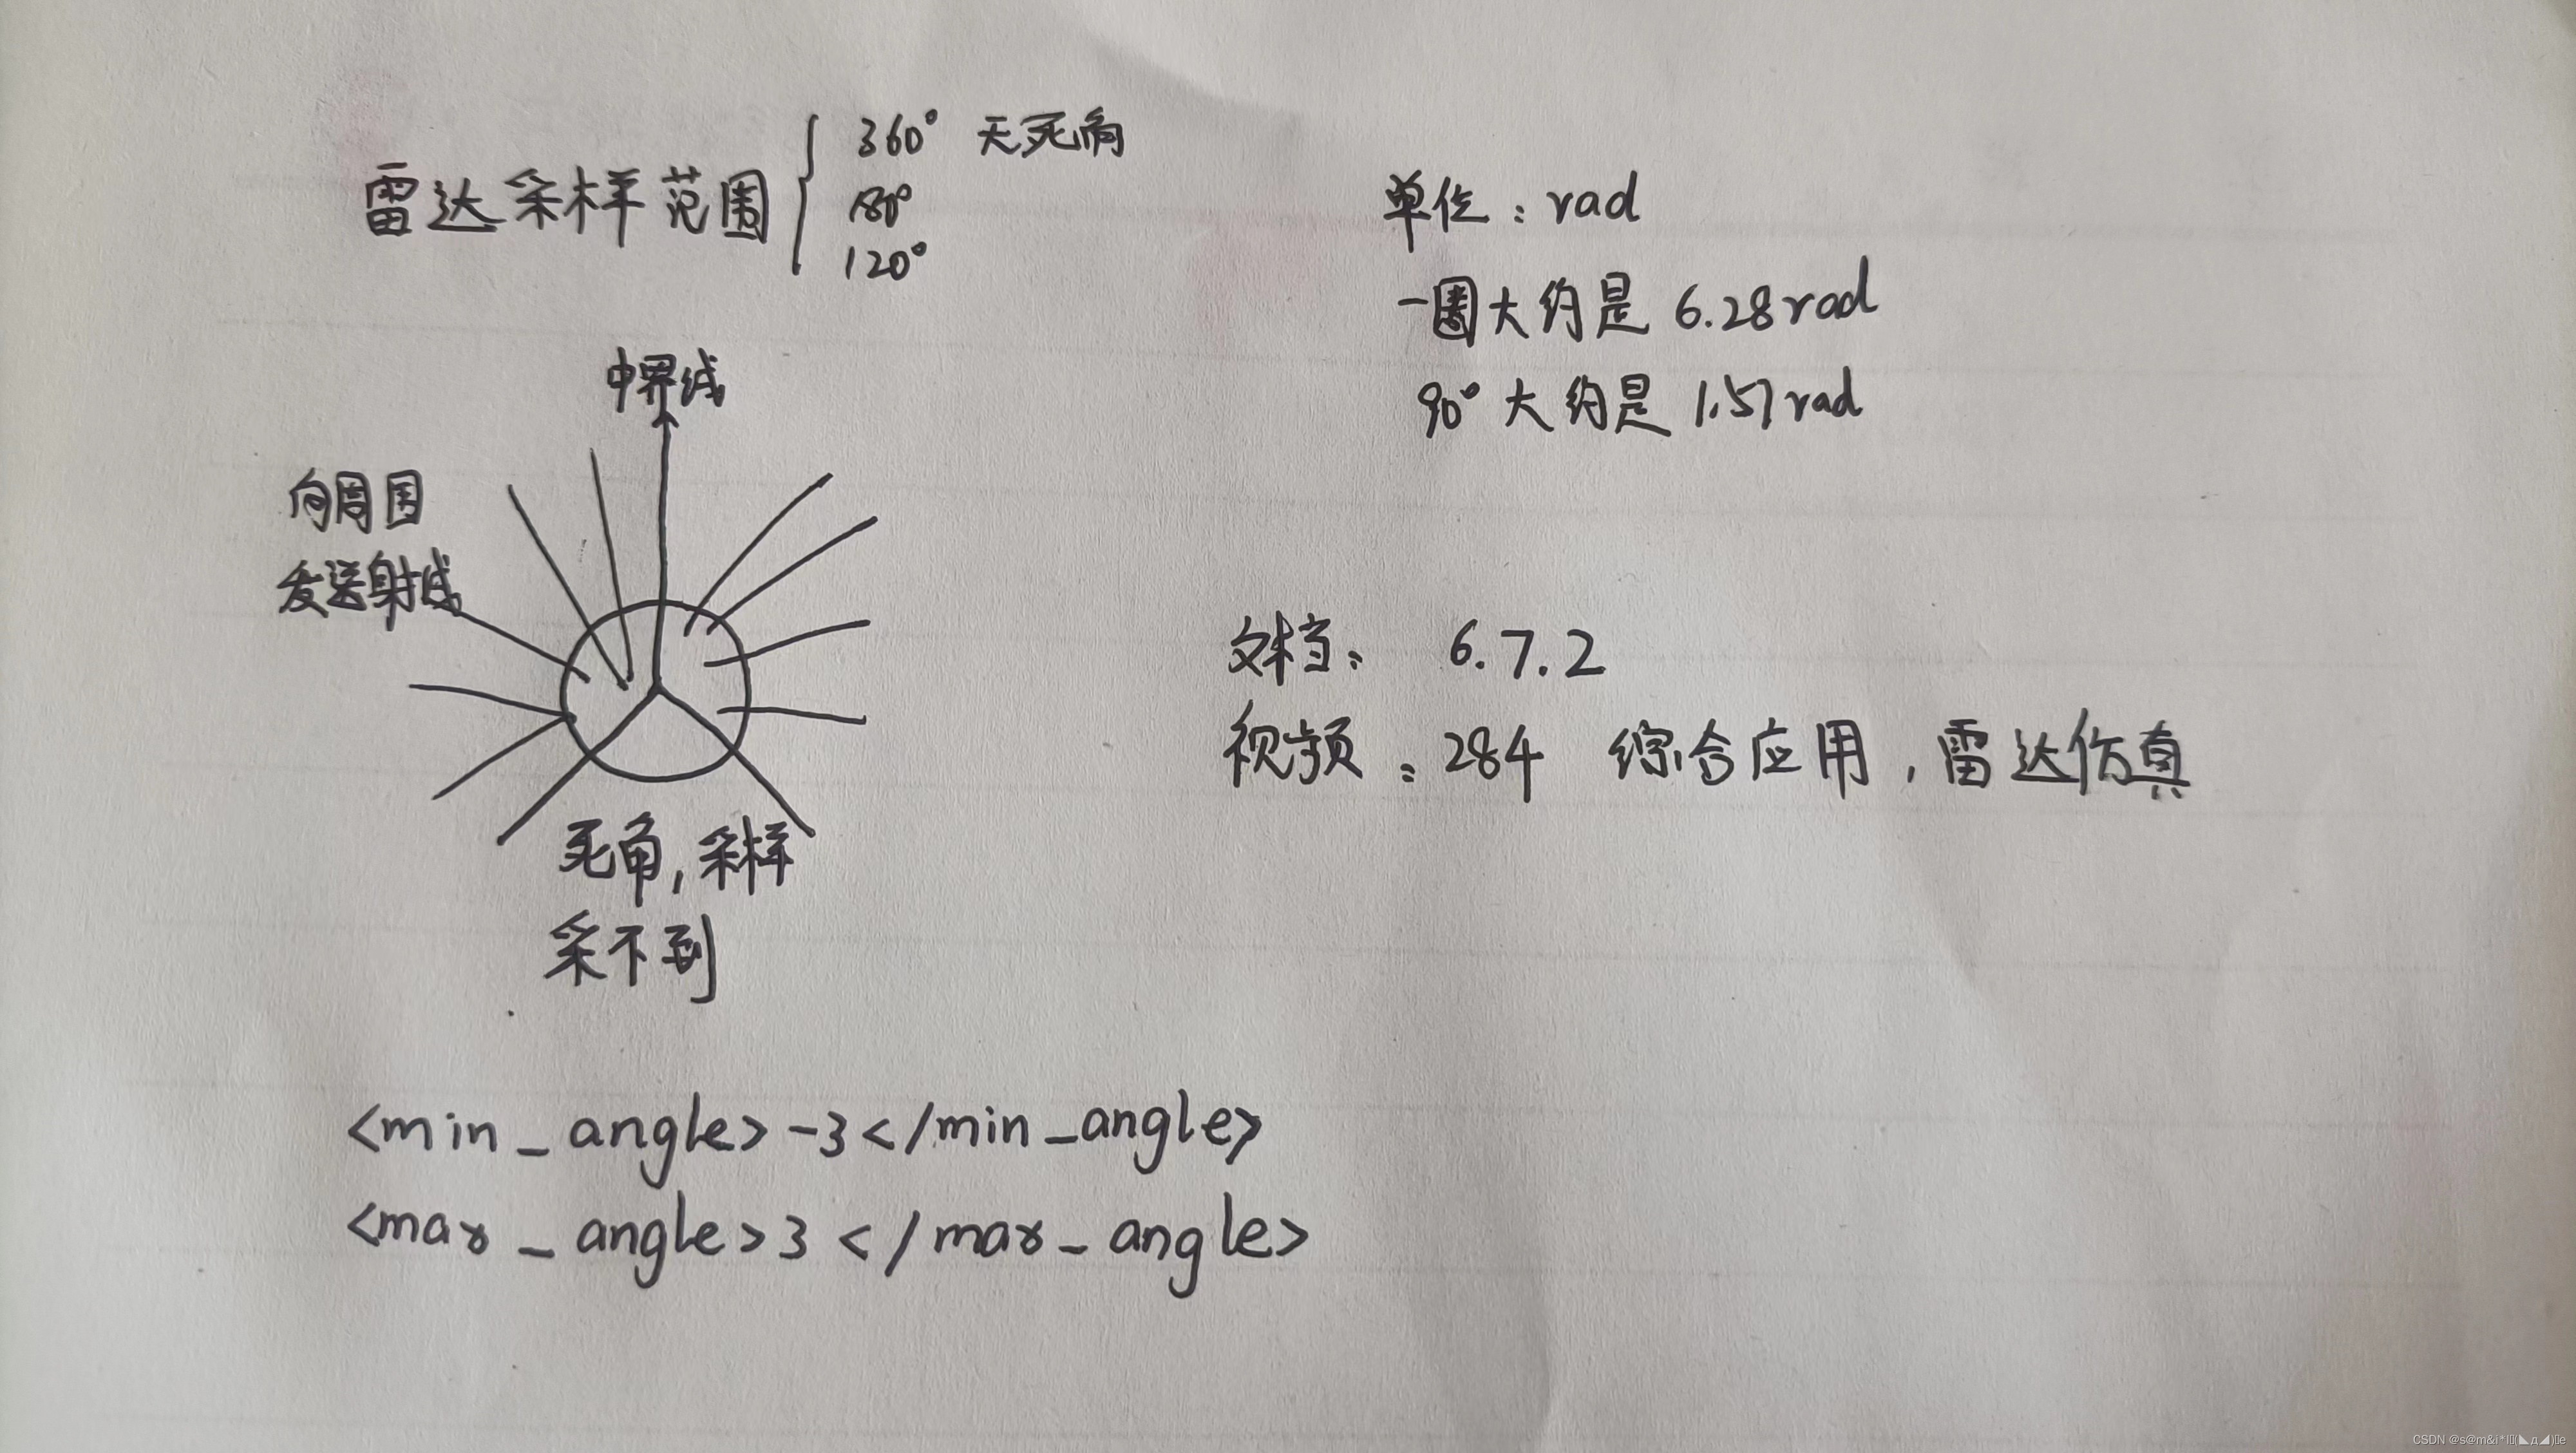 雷达采样范围
360° 无死角
180°
120°
单位：rad
一圈大约是 6.28rad
90°大约是 1.57rad
中界线
向周围
发送射线
死角，采样
采不到
文档： 6.7.2
视频：284 综合应用，雷达仿真
<min_angle>-3</min_angle>
<max_angle>3</max_angle>